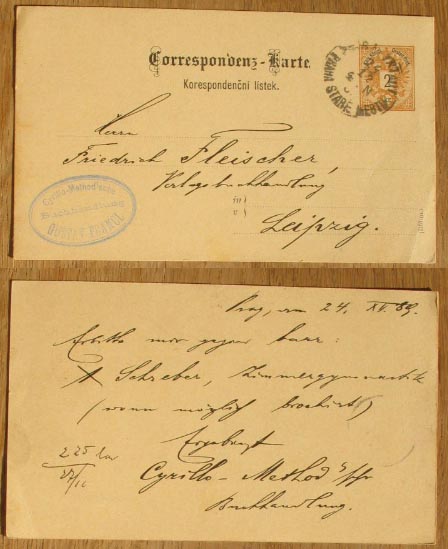 Correspondenz-Karte.
Korespondenční lístek.
2
Herrn
Friedrich Fleischer,
Verlagsbuchhandlung
in
v
Leipzig.
Cyrillo-Method'sche
Buchhandlung
GUSTAV FRANCL
PRAHA STARÉ MĚSTO
Prag, am 24. XII. 89.
Erbitte mir gegen baar:
1 Schreber, Zimmergymnastik
(wenn möglich brochirt)
Ergebenst
Cyrillo-Method'sche
Buchhandlung.
225 bar